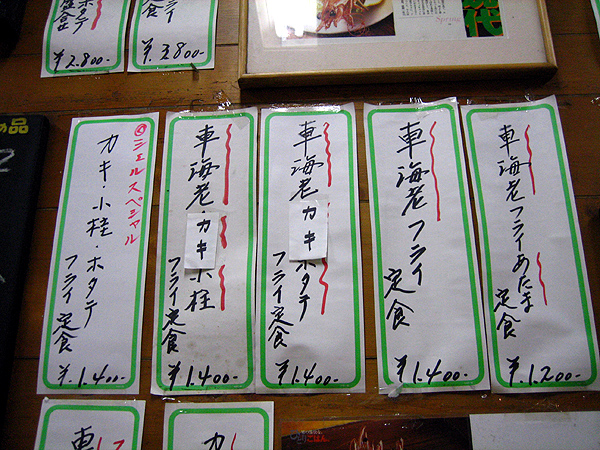 ¥2.800-
定食
¥.3800-
Spring
車海老フライあたま
定食
¥.1.200-
車海老フライ
定食
¥1.400-
車海老カキホタテ
フライ定食
¥1.400-
車海老・カキ小柱
フライ定食
¥1.400-
シェルスペシャル
カキ・小柱・ホタテ
フライ定食
¥.1.400-
品
車
カ
ごはん。